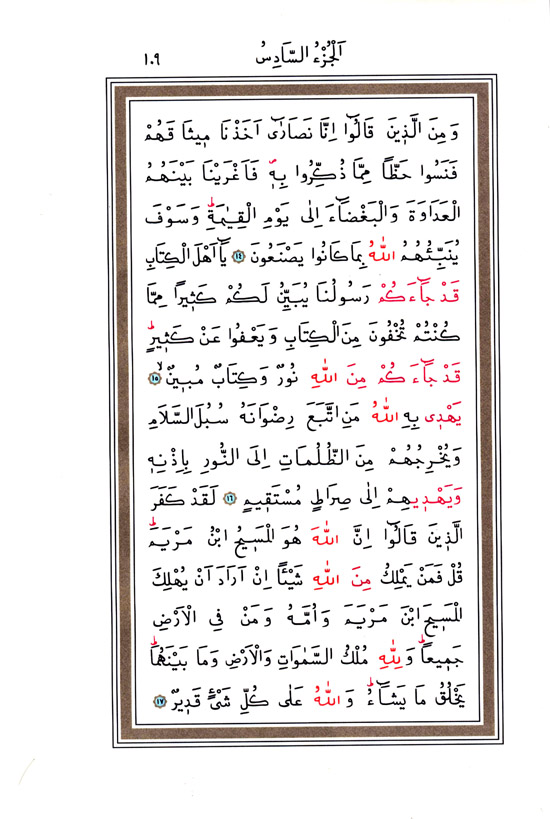 اَلْجُزْءُ السَّادِسُ ١٠٩
وَمِنَ الَّذ۪ينَ قَالُٓوا اِنَّا نَصَارٰٓى اَخَذْنَا م۪يثَاقَهُمْ
فَنَسُوا حَظًّا مِمَّا ذُكِّرُوا بِه۪ۖ فَاَغْرَيْنَا بَيْنَهُمُ
الْعَدَاوَةَ وَالْبَغْضَٓاءَ اِلٰى يَوْمِ الْقِيٰمَةِۜ وَسَوْفَ
يُنَبِّئُهُمُ اللّٰهُ بِمَا كَانُوا يَصْنَعُونَ ﴿١٤﴾ يَٓا اَهْلَ الْكِتَابِ
قَدْ جَٓاءَكُمْ رَسُولُنَا يُبَيِّنُ لَكُمْ كَث۪يرًا مِمَّا
كُنْتُمْ تُخْفُونَ مِنَ الْكِتَابِ وَيَعْفُوا عَنْ كَث۪يرٍۜ
قَدْ جَٓاءَكُمْ مِنَ اللّٰهِ نُورٌ وَكِتَابٌ مُب۪ينٌۙ ﴿١٥﴾
يَهْد۪ي بِهِ اللّٰهُ مَنِ اتَّبَعَ رِضْوَانَهُ سُبُلَ السَّلَامِ
وَيُخْرِجُهُمْ مِنَ الظُّلُمَاتِ اِلَى النُّورِ بِاِذْنِه۪
وَيَهْد۪يهِمْ اِلٰى صِرَاطٍ مُسْتَق۪يمٍ ﴿١٦﴾ لَقَدْ كَفَرَ
الَّذ۪ينَ قَالُٓوا اِنَّ اللّٰهَ هُوَ الْمَس۪يحُ ابْنُ مَرْيَمَۜ
قُلْ فَمَنْ يَمْلِكُ مِنَ اللّٰهِ شَيْـًٔا اِنْ اَرَادَ اَنْ يُهْلِكَ
الْمَس۪يحَ ابْنَ مَرْيَمَ وَاُمَّهُ وَمَنْ فِي الْاَرْضِ
جَم۪يعًاۜ وَلِلّٰهِ مُلْكُ السَّمٰوَاتِ وَالْاَرْضِ وَمَا بَيْنَهُمَاۜ
يَخْلُقُ مَا يَشَٓاءُۜ وَاللّٰهُ عَلٰى كُلِّ شَيْءٍ قَد۪يرٌ ﴿١٧﴾